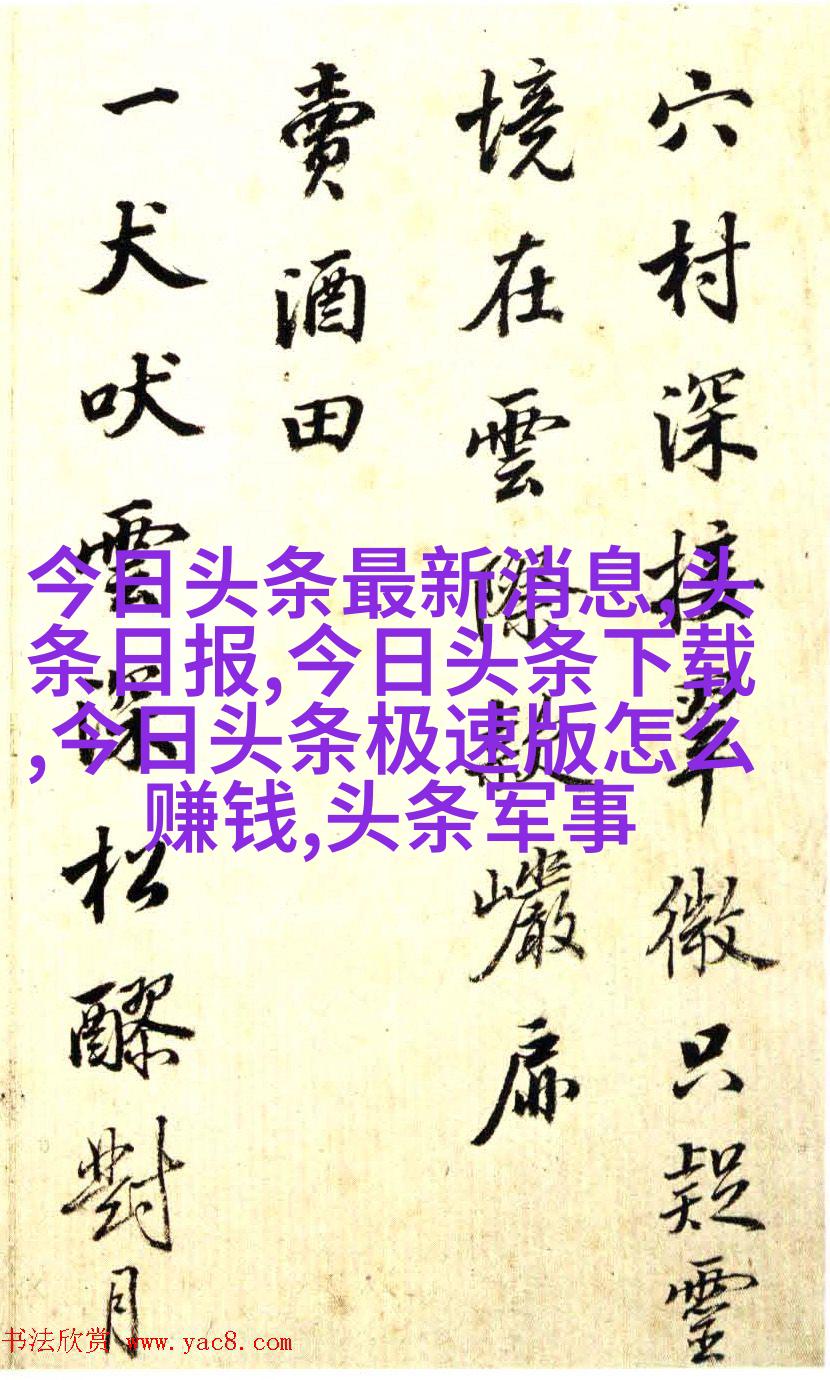 穴村深接翠微只疑靈
境在雲際敲巖扉
賣酒田
一犬吠雲深松醪對月
今日头条最新消息,头
条日报,今日头条下载
,今日头条极速版怎么
赚钱,头条军事
书法欣赏 www.yac8.com